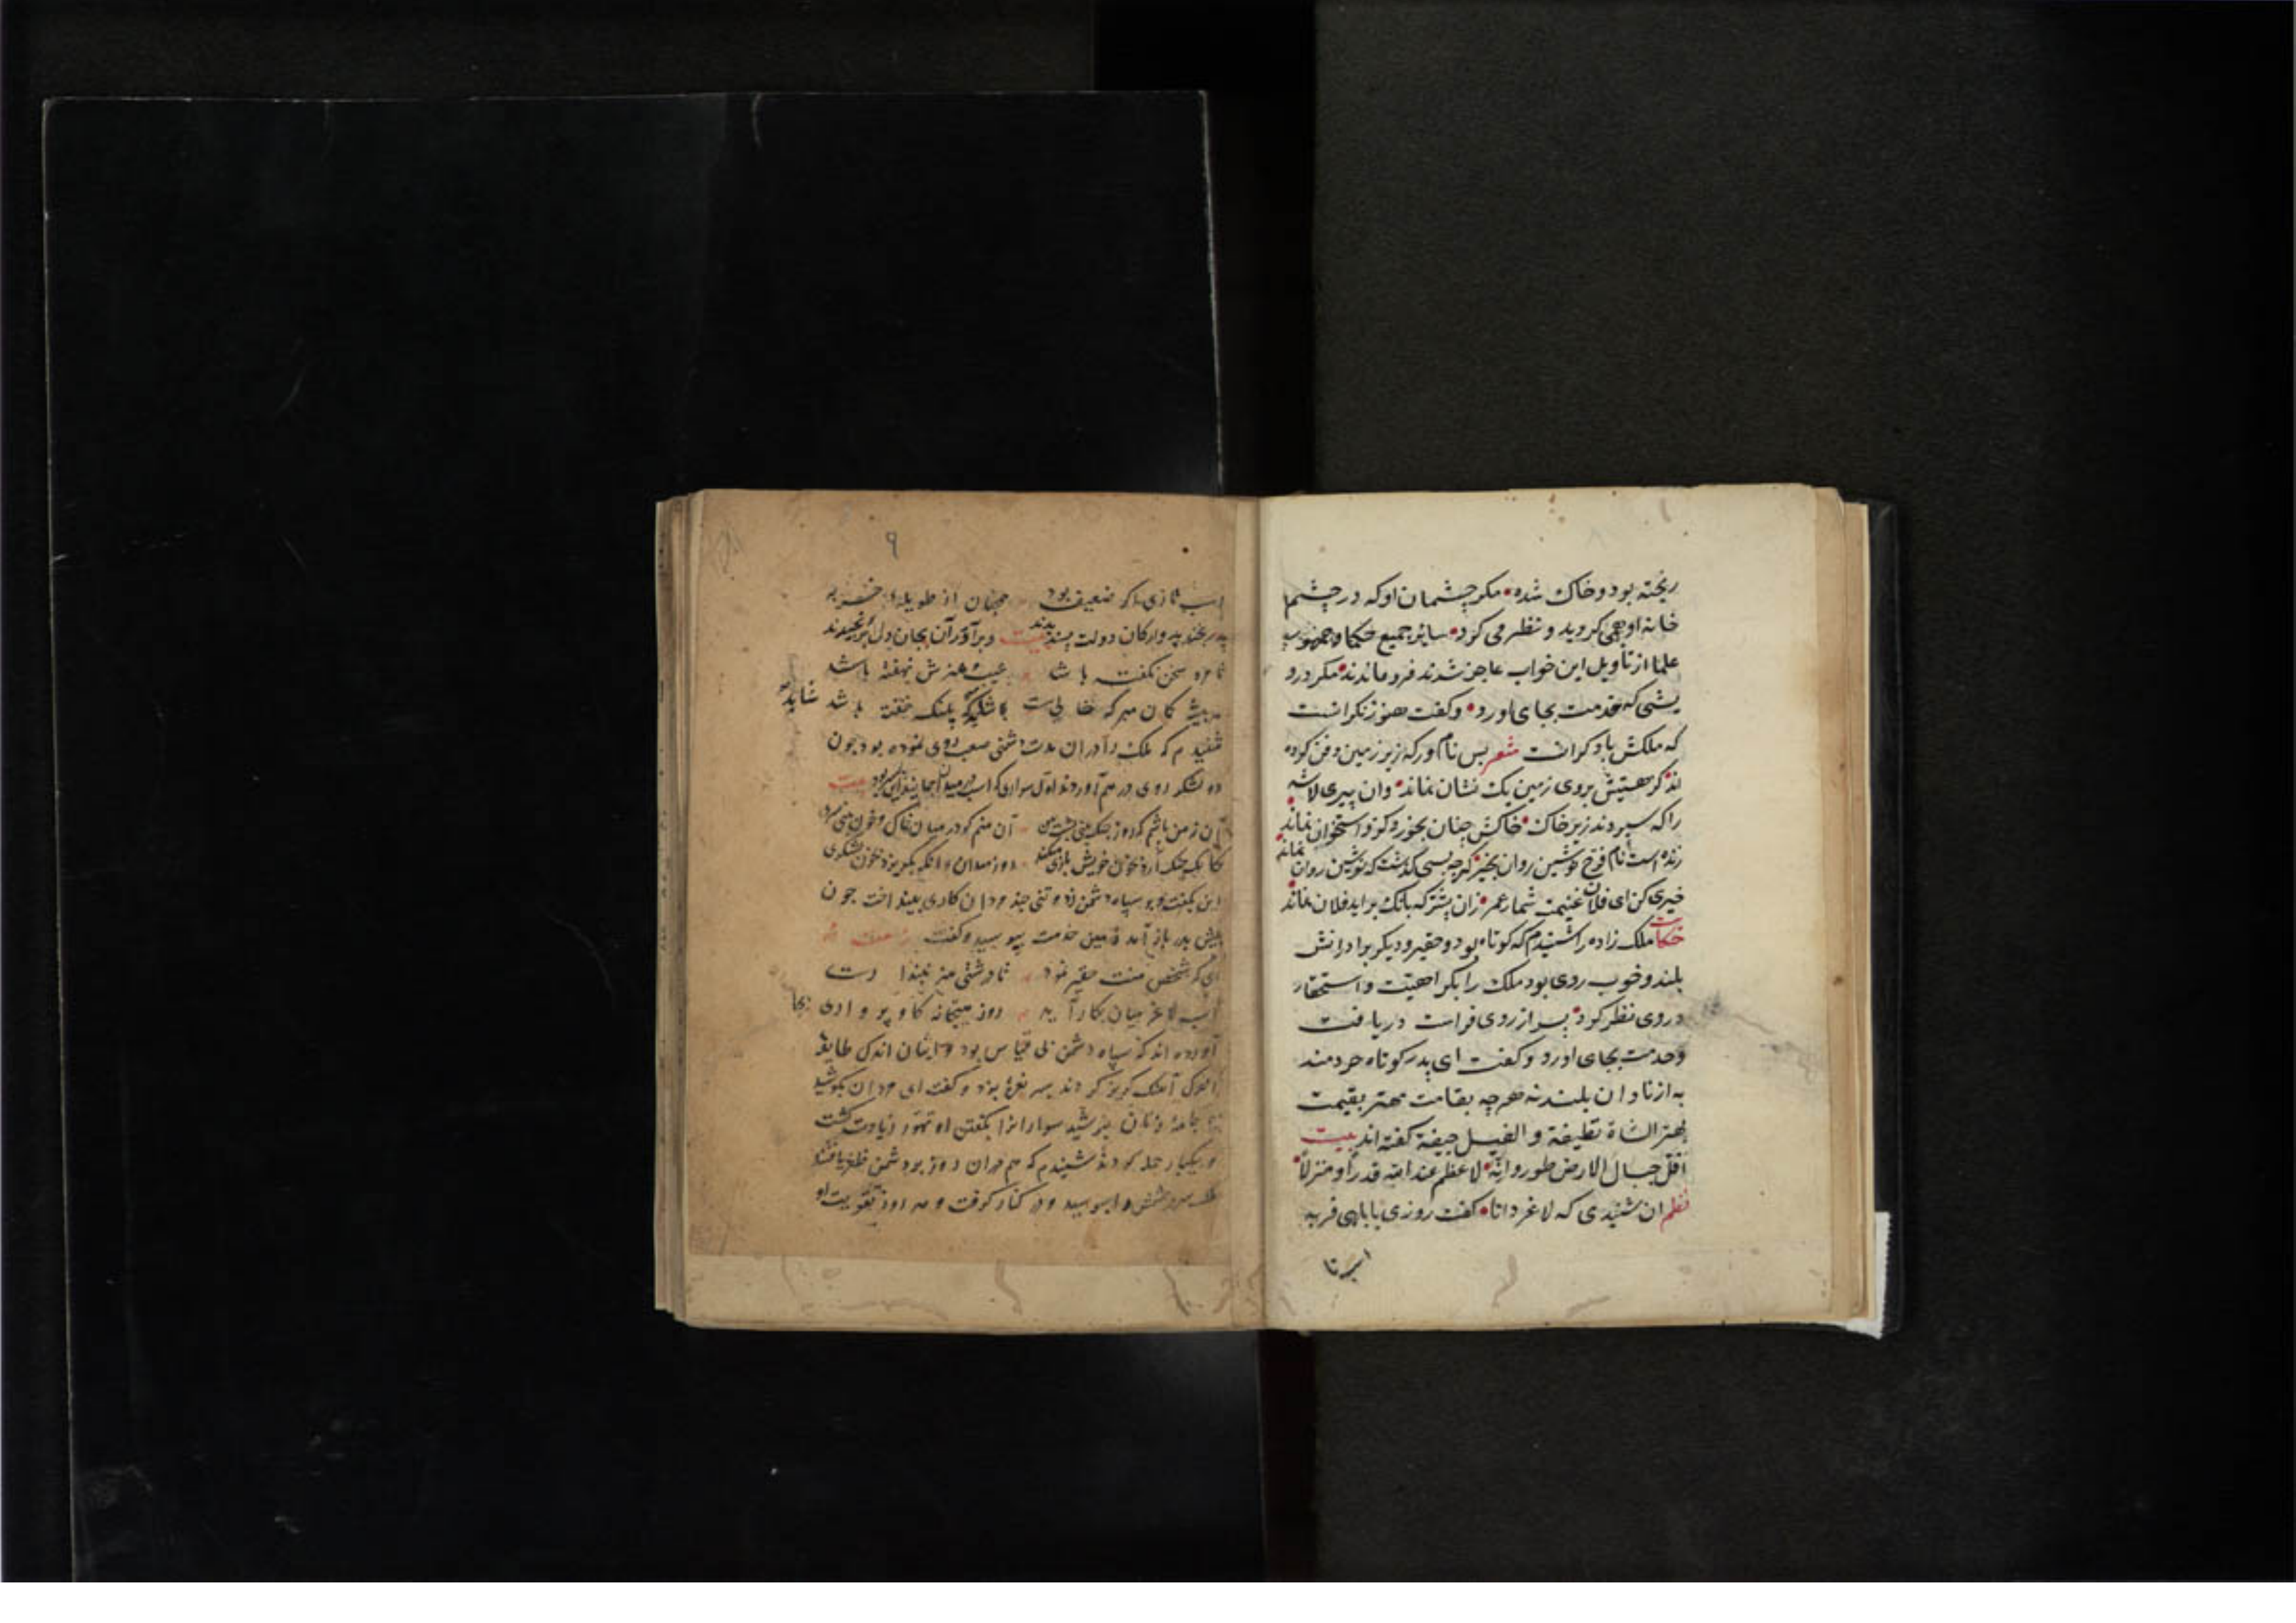 ریخته بود و خاک شده مکر چشمان او که در چشم
خانه او همی کردید و نظر می کرد سایر جمیع حکما و جمهور
علما از تاویل این خواب عاجز شدند فرو ماندند مکر درو
یشی که خدمت بجای اورد و کفت هنوز نکرانست
که ملکش با دکرانست شعر بس نامور که زیر زمین دفن کرده
اند کز هستیش بروی زمین یک نشان نماند وان پیری لاشه
را که سپردند زیر خاک خاکش چنان بخورد کزو استخوان نماند
زنده است نام فرخ نوشین روان بخیر کرچه بسی کذشت که نوشین روان نماند
خیری کن ای فلان غنیمت شمار عمر زان پیشتر که بانک براید فلان نماند
حکایت ملک زاده را شنیدم که کوتاه بود و حقیر و دیکر برادرانش
بلند و خوب روی بود ملک را بکراهیت و استحقار
در وی نظر کرد پسر از روی فراست دریافت
و خدمت بجای اورد و کفت ای پدر کوتاه خردمند
به از نادان بلند نه هرچه بقامت مهتر بقیمت
بهتر الشاة نظیفة و الفیل جیفة کفته اند بیت
اقل جبال الارض طور وانه لاعظم عند الله قدرا و منزلا
نظم ان شنیدی که لاغر دانا کفت روزی بابلهی فربه
اسب تا
۹
اسب تازی اکر ضعیف بود همچنان از طویلهٔ خر به
پدر بخندید و ارکان دولت پسندیدند و برادران بجان و دل برنجیدند بیت
تا مرد سخن نکفته باشد عیب و هنرش نهفته باشد
هر بیشه کمان مبر که خالیست شاید که پلنک خفته باشد
شنیدم که ملک را دران مدت دشمنی صعب روی نموده بود چون
دو لشکر روی در هم آوردند اول سواری که اسب در میدان
آن نه من باشم که روز جنک بینی پشت من آن منم کو در میان خاک و خون بینی سری
کانکه جنک آرد بخون خویش بازی میکند روز میدان وانکه بکریزد بخون لشکری
این بکفت و بر سپاه دشمن زد و تنی چند مردان کاری بینداخت چون
پیش پدر باز آمد زمین خدمت ببوسید و کفت
ای که شخص منت حقیر نمود تا درشتی هنر نپنداری
اسب لاغر میان بکار آید روز میدان نه کاو پرواری
آورده اند که سپاه دشمن بی قیاس بود و ایشان اندک طایفه
آهنک کریز کردند پسر نعره بزد و کفت ای مردان بکوشید
تا جامهٔ زنان نپوشید سوارانرا بکفتن او تهور زیادت کشت
و بیکبار حمله کردند شنیدم که هم دران روز بر دشمن ظفر یافتند
ملک سر و چشمش را ببوسید و در کنار کرفت و هر روز